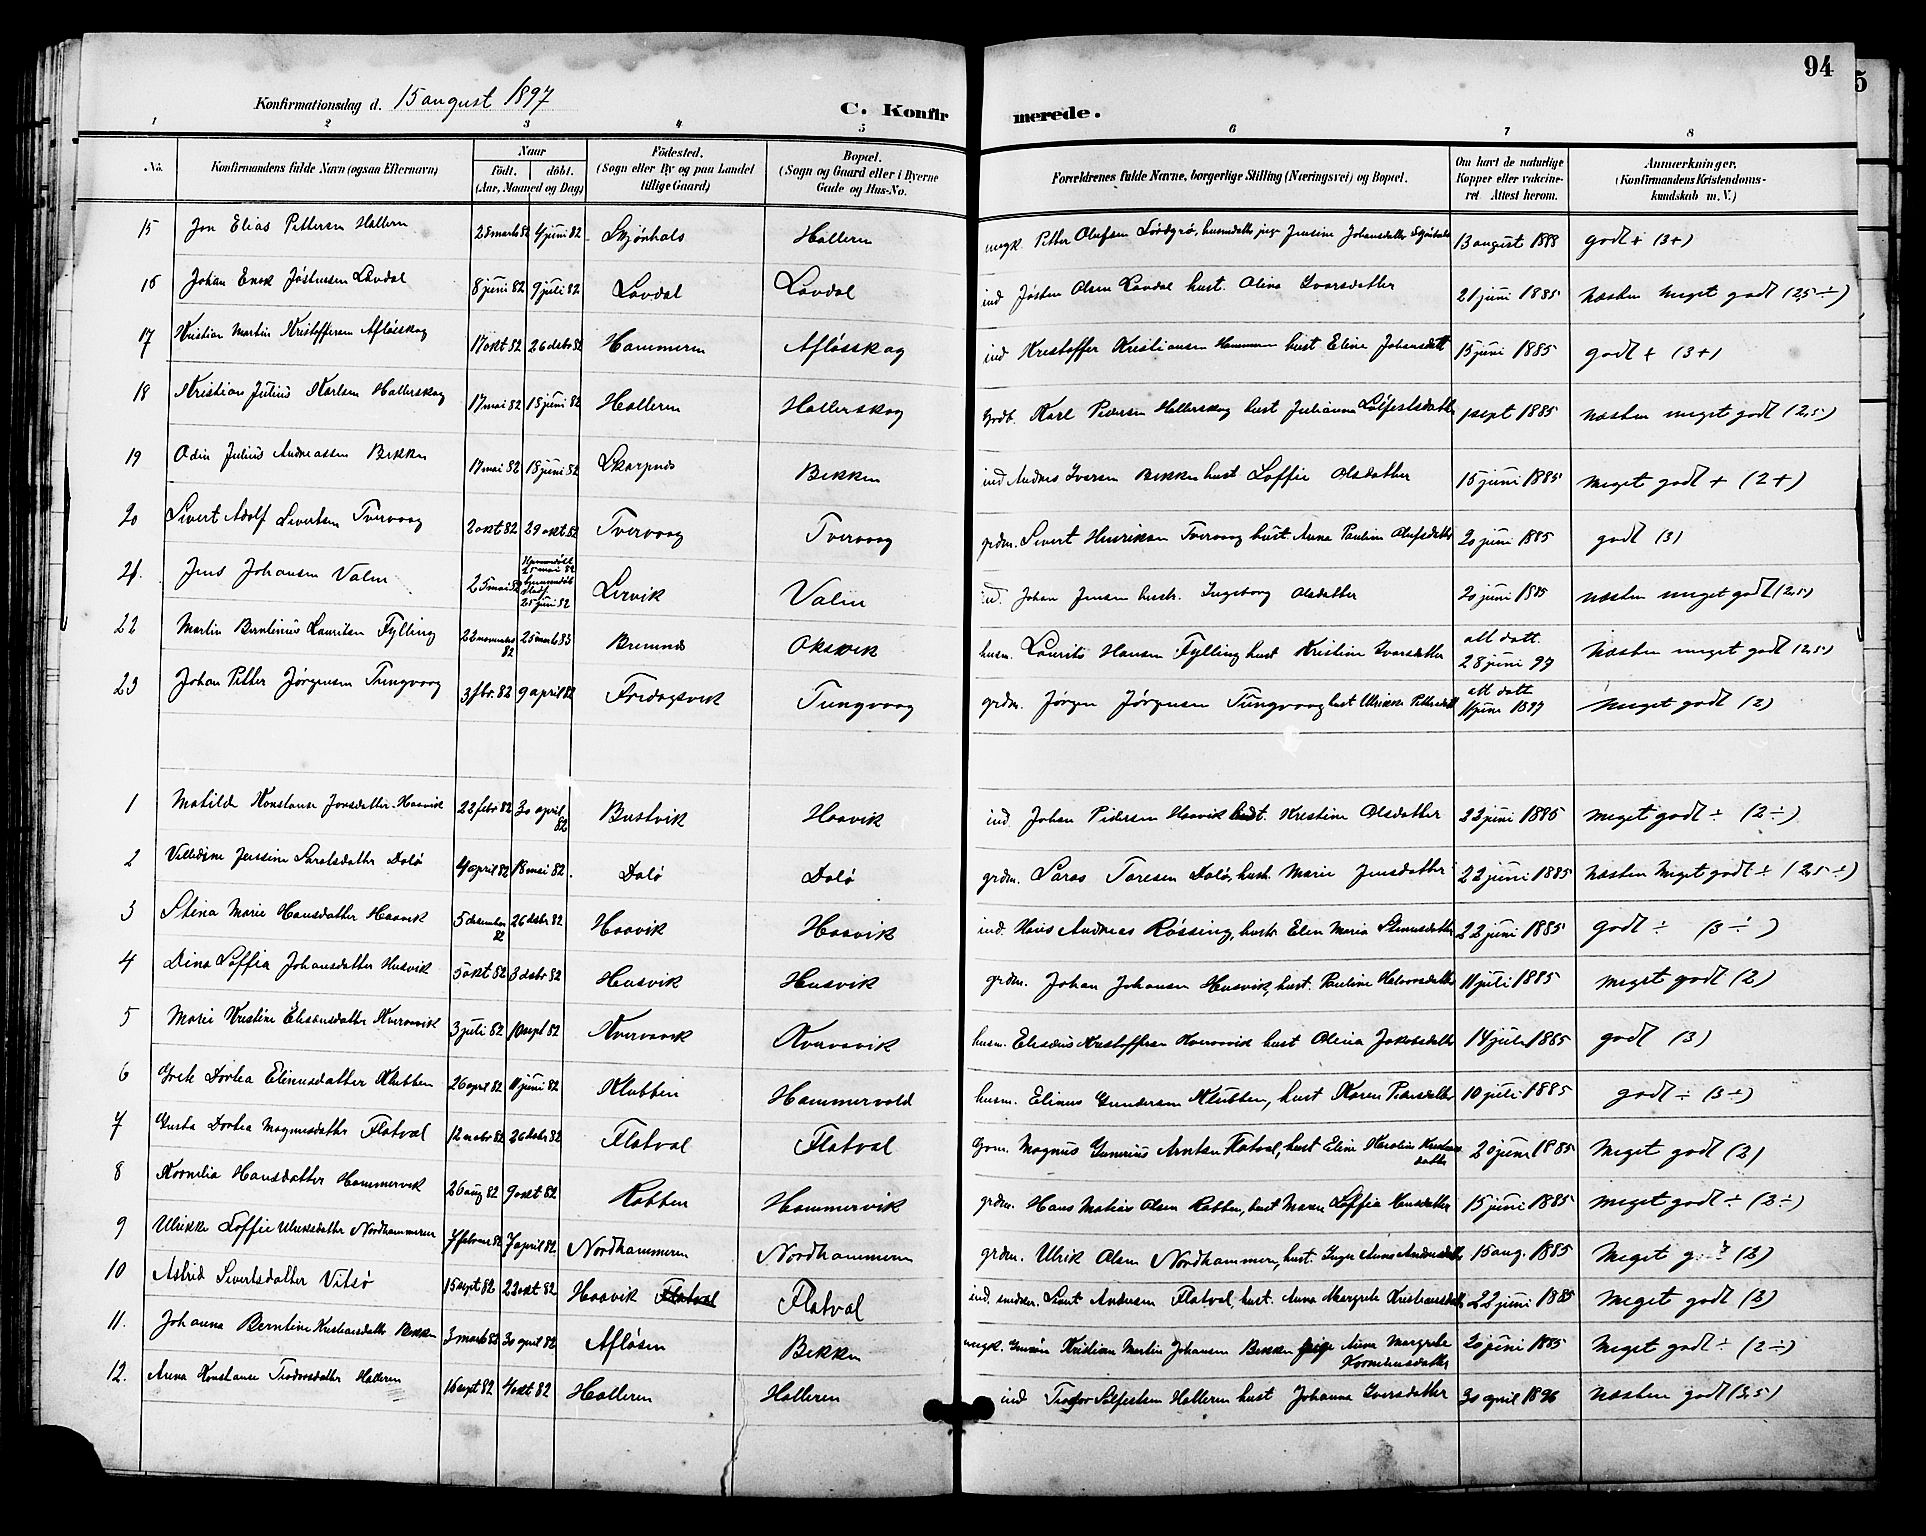 94
Konfirmationsdag d. 15 august 1897
C. Konfir merede.
1 2 3 4 5 6 7 8
No. Konfirmandens fulde Navn (ogsaa Efternavn) Naar født. døbt. (Aar, Maaned og Dag) Födested. (Sogn eller By og paa Landet tillige Gaard) Bopæl. (Sogn og Gaard eller i Byerne Gade og Hus-No. Forældrenes fulde Navne, borgerlige Stilling (Næringsvei) og Bopæl. Om havt de naturlige Kopper eller vakcineret Attest herom. Anmærkninger. (Konfirmandens Kristendomskundskab m. V.)
15 Jon Elias Pettersen Halleren 28 marts 82 4 juni 82 Skjönhals Halleren ungk. Petter Olufsen Jensine Johansdatter 13 august 1888 godt + (3+)
16 Johan Enok Jöstensen Lövdal 8 juni 82 9 juli 82 Lövdal Lövdal ind Jösten Olsen Lövdal hust. Olina Ivarsdatter 21 juni 1885 Næsten Meget godt (2,5 ÷)
17 Kristian Martin Kristoffersen Aflösskog 17 okt 82 26 debr 82 Hammeren Aflösskog ind Kristoffer Kristiansen Hammeren hust Eline Johansdatt 15 juni 1885 godt + (3+)
18 Kristian Julius Karlsen Hallerskog 17 mai 82 18 juni 82 Halleren Hallerskog Karl Pedersen Hallerskog hust Julianna Sölfestsdatter 1 sept 1885 næsten meget godt (2,5)
19 Odin Julius Andreassen Bekken 17 mai 82 18 juni 82 Skarpnes Bekken ind Andres Iversen Bekken hust Soffie Olsdatter 15 juni 1885 meget godt + (2+)
20 Sivert Adolf Sivertsen Tvervaag 2 okt 82 29 okt 82 Tvervaag Tvervaag grdm. Sivert Henriksen Tvervaag hust. Anna Pauline Olufsdatter 20 juni 1885 godt (3)
21. Jens Johansen Valen 25 mai 82 Hjemmedöbt 25 mai 82 25 juni 82 Lervik Valen ind. Johan Jensen hustr. Ingeborg Olsdatter 20 juni 1885 næsten meget godt (2,5)
22 Martin Berntinius Lauritsen Fylling 22 november 82 25 marts 83 Bremnes Oksvik husm. Laurits Hansen Fylling hust Kristine Ivarsdatter att datt. 28 juni 97 Næsten meget godt (2,5)
23 Johan Petter Jörgensen Tungvaag 3 fbr. 82 9 april 82 Fredagsvik Tungvaag grdm. Jörgen Jörgensen Tungvaag hust Ulrikke Pettersdatt att datt 11 juni 1897 Meget godt (2)
1 Matilde Konstanse Jonsdatter Haavik 22 febr 82 30 april 82 Bustvik Haavik ind. Johan Pedersen Haavik hust. Kristine Olsdatter 22 juni 1885 meget godt ÷ (2 ÷)
2 Jensine Sarasdatter Dalö 4 april 82 18 mai 82 Dalö Dalö grdm. Saras Taresen Dalö, hust. Marie Jensdatter 22 juni 1885 næsten Meget godt ÷ (2,5 ÷)
3 Stina Marie Hansdatter Haavik 5 desember 82 26 debr 82 Haavik Haavik ind. Hans Andreas Røssing, hustr. Elen Maria Stensdatter 22 juni 1885 godt ÷ (3 ÷)
4 Dina Soffia Johansdatter Husvik 5 okt 82 3 debr 82 Husvik Husvik grdm. Johan Johansen Husvik, hust. Pauline Halvorsdatter 11 juli 1885 meget godt (2)
5 Marie Kristine Eliseusdatter Kvernvik 3 juli 82 10 sept 82 Kvernvik Kvernvik husm. Eliseus Kristoffersen Kvernvik hust Olina Jakobsdatter 14 juli 1885 godt (3)
6 Grete Dortea Elinusdatter Klubben 26 april 82 11 juni 82 Klubben Hammervold husm. Elinus Gundersen Klubben, hust Karen Pedersdatter 10 juli 1885 godt ÷ (3 ÷)
7 Gusta Dortea Magnusdatter Flatval 12 nobr 82 26 debr 82 Flatval Flatval Magnus Gunerius Arntsen Flatval, hust Eline Karoline datter 20 juni 1885 Meget godt (2)
8 Kornelia Hansdatter Hammervik 26 aug 82 9 okt 82 Rabben Hammervik grdm. Hans Matias Olsen Rabben, hust Maren Soffia Hansdatter 15 juni 1885 meget godt ÷ (2 ÷)
9 Ulrikke Soffie Ulriksdatter Nordhammeren 7 februar 82 7 april 82 Nordhammeren Nordhammeren grdm. Ulrik Olsen Nordhammeren, hust. Inger Anna 15 aug. 1885 Meget (3)
10 Astrid Sivertsdatter Vitsö 15 sept 82 22 okt 82 Haavik Flatval Flatval ind. snedker. Sivert Andersen Flatval, hust. Anna Margrete Kristiansdatter 22 juni 1885 Meget godt (3)
11. Johanna Berntine Kristiansdatter Bekken 3 marts 82 30 april 82 Aflösen Bekken ungk. Kristian Martin Johansen Bekken pige Anna Margrete Korneliusdatter 20 juni 1885 Meget godt ÷ (2 ÷)
12. Anna Konstanse Teodorsdatter Halleren 16 sept 82 4 okt 82 Halleren Halleren ind Teodor Sölfestsen Halleren hust Johanna Iversdatter 30 april 1896 næsten godt (3,5)